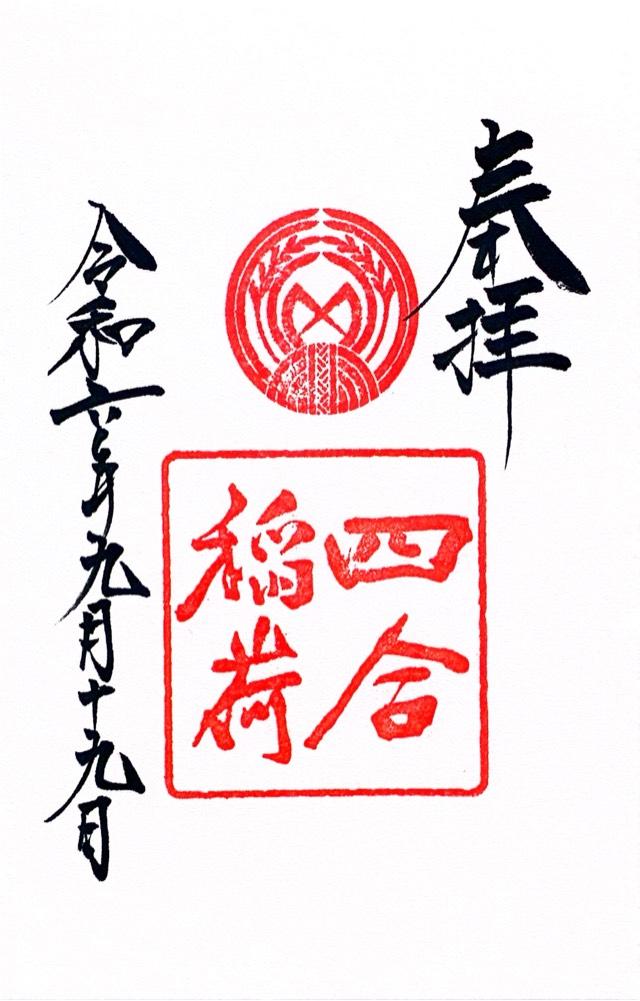 奉拝
四合
稲荷
令和六年九月十九日